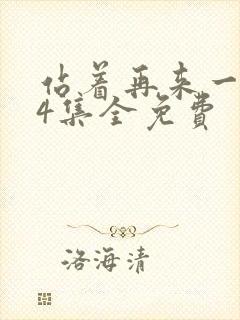 佔着再来一
4集全免费
洛海清